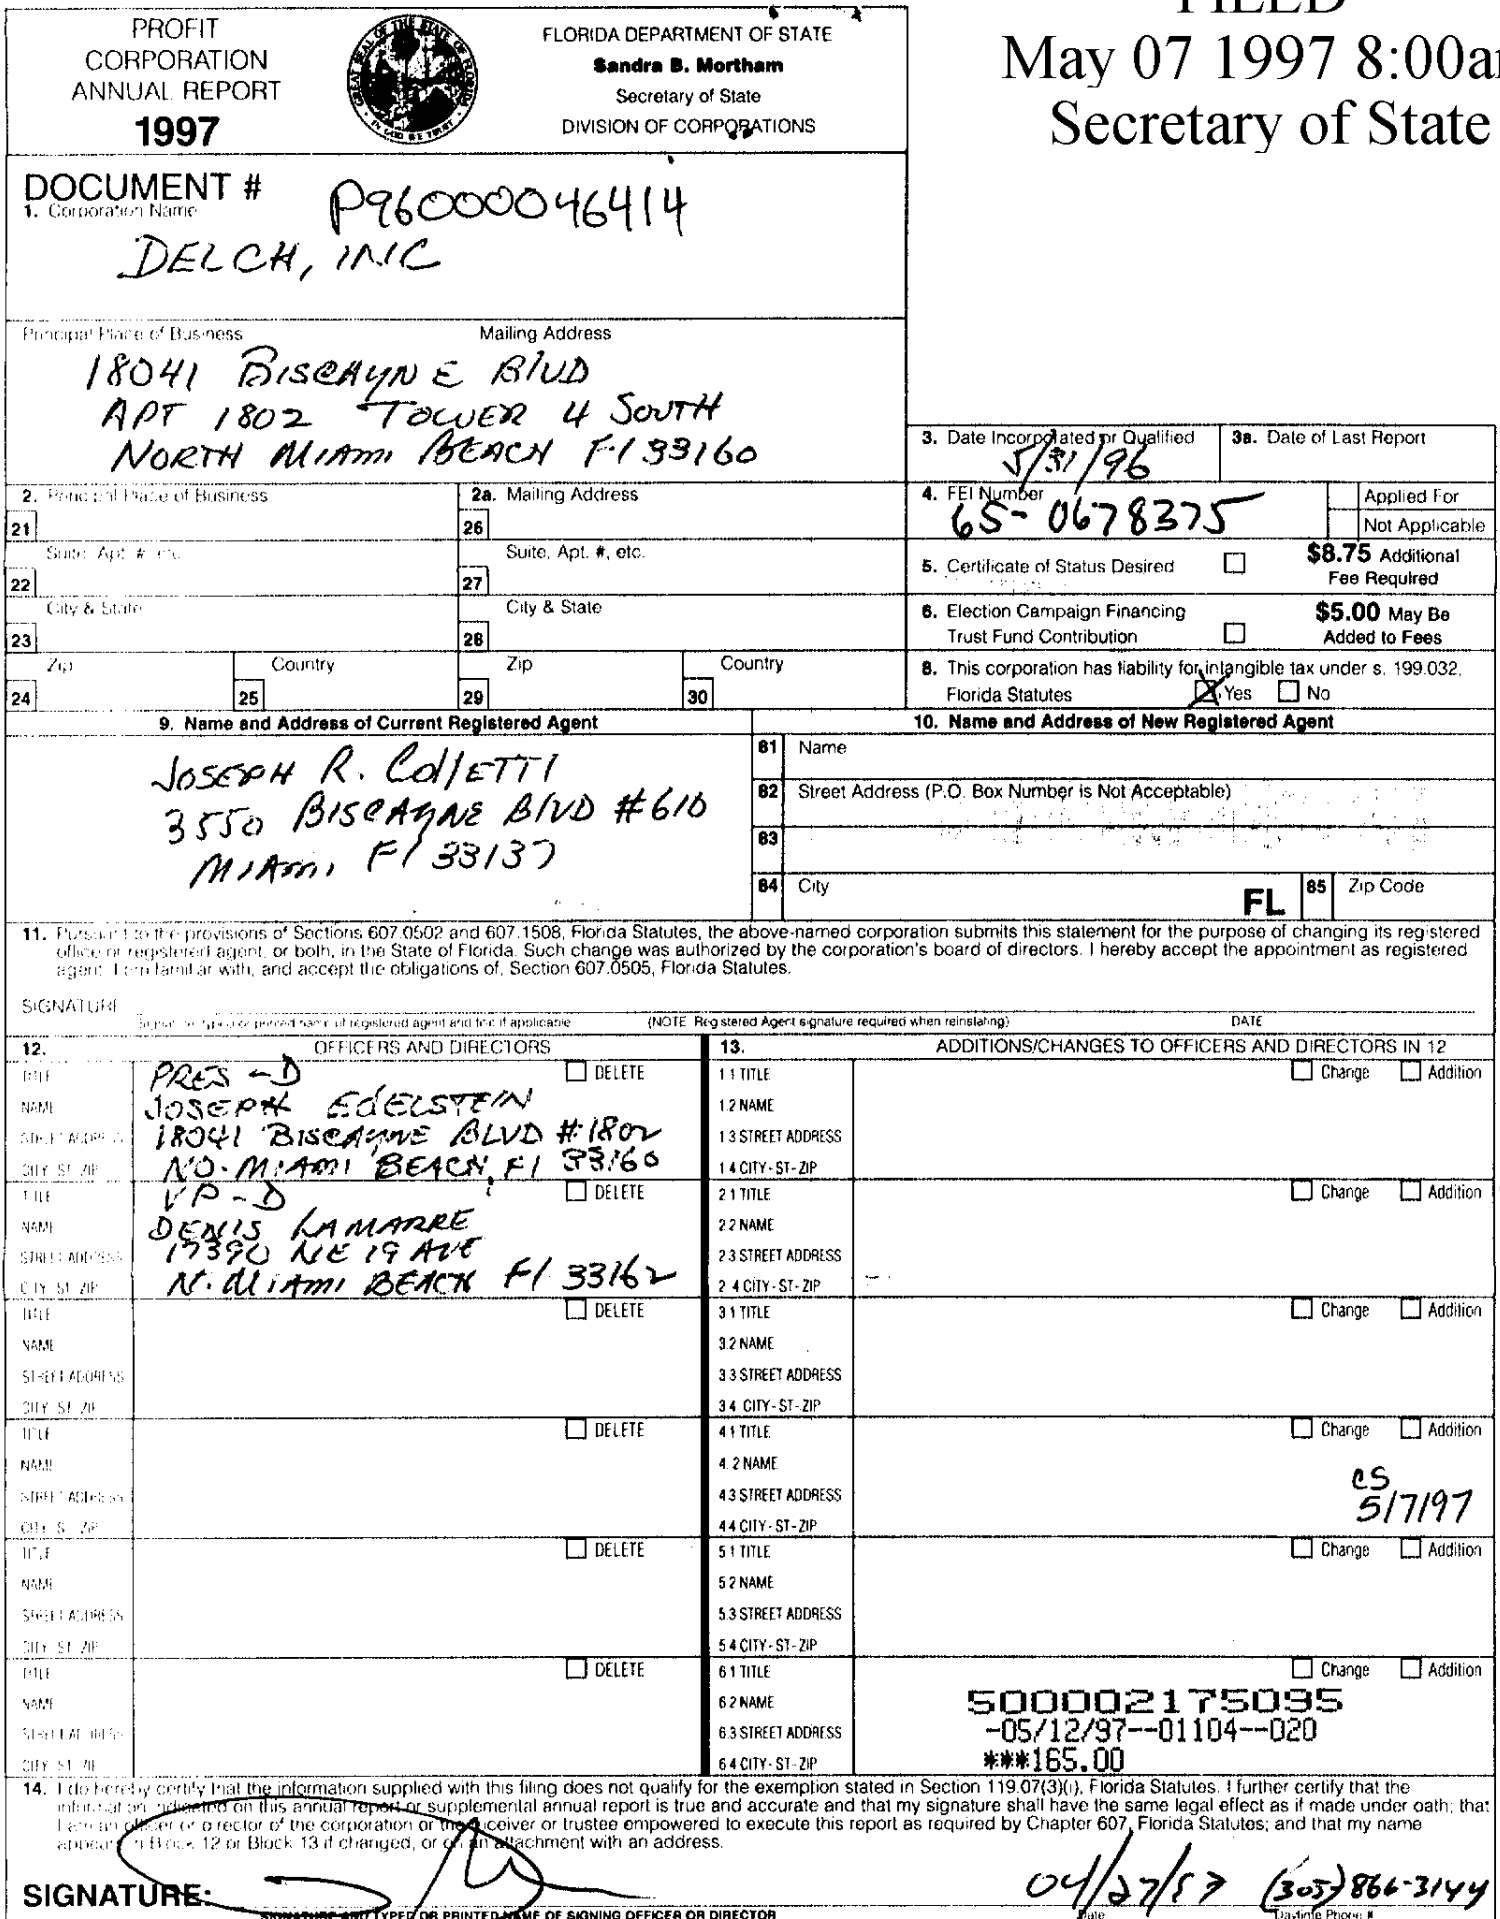 PROFIT
CORPORATION
ANNUAL REPORT
1997
FLORIDA DEPARTMENT OF STATE
Sandra B. Mortham
Secretary of State
DIVISION OF CORPORATIONS
FILED
May 07 1997 8:00a
Secretary of State
DOCUMENT # P96000046414
1. Corporation Name
DELCH, INC
Principal Place of Business Mailing Address
18041 BISCAYNE BLVD
APT 1802 TOWER 4 SOUTH
NORTH MIAMI BEACH Fl 33160
3. Date Incorporated or Qualified
5/31/96
3a. Date of Last Report
2. Principal Place of Business
2a. Mailing Address
4. FEI Number
65-0678375
Applied For
Not Applicable
21
26
Suite, Apt. #, etc.
Suite, Apt. #, etc.
22
27
5. Certificate of Status Desired
$8.75 Additional
Fee Required
City & State
City & State
23
28
6. Election Campaign Financing
Trust Fund Contribution
$5.00 May Be
Added to Fees
Zip Country Zip Country
24 25 29 30
8. This corporation has liability for intangible tax under s. 199.032,
Florida Statutes Yes No
9. Name and Address of Current Registered Agent
JOSEPH R. COLLETTI
3550 BISCAYNE BLVD #610
MIAMI, Fl 33137
10. Name and Address of New Registered Agent
81 Name
82 Street Address (P.O. Box Number is Not Acceptable)
83
84 City FL 85 Zip Code
11. Pursuant to the provisions of Sections 607.0502 and 607.1508, Florida Statutes, the above-named corporation submits this statement for the purpose of changing its registered
office or registered agent, or both, in the State of Florida. Such change was authorized by the corporation's board of directors. I hereby accept the appointment as registered
agent. I am familiar with, and accept the obligations of, Section 607.0505, Florida Statutes.
SIGNATURE
Signature, typed or printed name of registered agent and title if applicable (NOTE Registered Agent signature required when reinstating) DATE
12. OFFICERS AND DIRECTORS
13. ADDITIONS/CHANGES TO OFFICERS AND DIRECTORS IN 12
TITLE PRES - D DELETE
NAME JOSEPH EDELSTEIN
STREET ADDRESS 18041 BISCAYNE BLVD #1802
CITY-ST-ZIP NO. MIAMI BEACH, Fl 33160
1 1 TITLE Change Addition
1.2 NAME
1 3 STREET ADDRESS
1 4 CITY-ST-ZIP
TITLE VP - D DELETE
NAME DENIS LAMARRE
STREET ADDRESS 17390 NE 19 AVE
CITY-ST-ZIP N. MIAMI BEACH Fl 33162
2 1 TITLE Change Addition
2 2 NAME
2 3 STREET ADDRESS
2 4 CITY-ST-ZIP
TITLE DELETE
NAME
STREET ADDRESS
CITY-ST-ZIP
3 1 TITLE Change Addition
3.2 NAME
3 3 STREET ADDRESS
3 4 CITY-ST-ZIP
TITLE DELETE
NAME
STREET ADDRESS
CITY-ST-ZIP
4 1 TITLE Change Addition
4.2 NAME
4 3 STREET ADDRESS
4 4 CITY-ST-ZIP
CS
5/7/97
TITLE DELETE
NAME
STREET ADDRESS
CITY-ST-ZIP
5 1 TITLE Change Addition
5 2 NAME
5.3 STREET ADDRESS
5 4 CITY-ST-ZIP
TITLE DELETE
NAME
STREET ADDRESS
CITY-ST-ZIP
6 1 TITLE Change Addition
6 2 NAME
6.3 STREET ADDRESS
6 4 CITY-ST-ZIP
500002175095
-05/12/97--01104--020
***165.00
14. I do hereby certify that the information supplied with this filing does not qualify for the exemption stated in Section 119.07(3)(i), Florida Statutes. I further certify that the
information indicated on this annual report or supplemental annual report is true and accurate and that my signature shall have the same legal effect as if made under oath; that
I am an officer or director of the corporation or the receiver or trustee empowered to execute this report as required by Chapter 607, Florida Statutes; and that my name
appears in Block 12 or Block 13 if changed, or on an attachment with an address.
SIGNATURE: 04/27/97 (305) 866-3144
SIGNATURE AND TYPED OR PRINTED NAME OF SIGNING OFFICER OR DIRECTOR Date Daytime Phone #